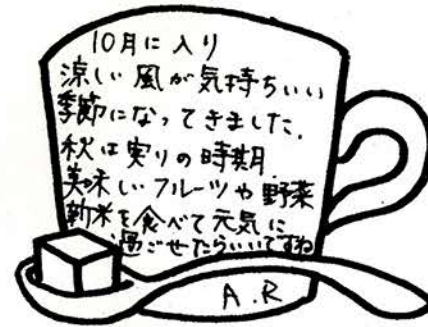 10月に入り
涼しい風が気持ちいい
季節になってきました.
秋は実りの時期.
美味しいフルーツや野菜
新米を食べて元気に
過ごせたらいいですね
A.R